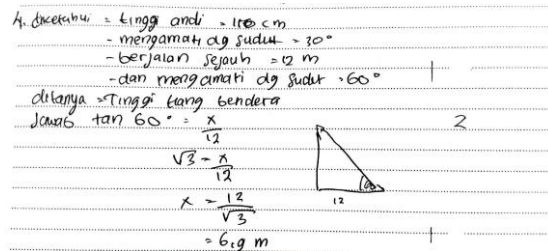 4. diketahui = tinggi andi = 160 cm
- mengamati dg sudut = 30°
- berjalan sejauh = 12 m
- dan mengamati dg sudut = 60°
ditanya = Tinggi tiang bendera
Jawab tan 60° = x/12
2
√3 = x/12
x = 12/√3
12
= 6,9 m